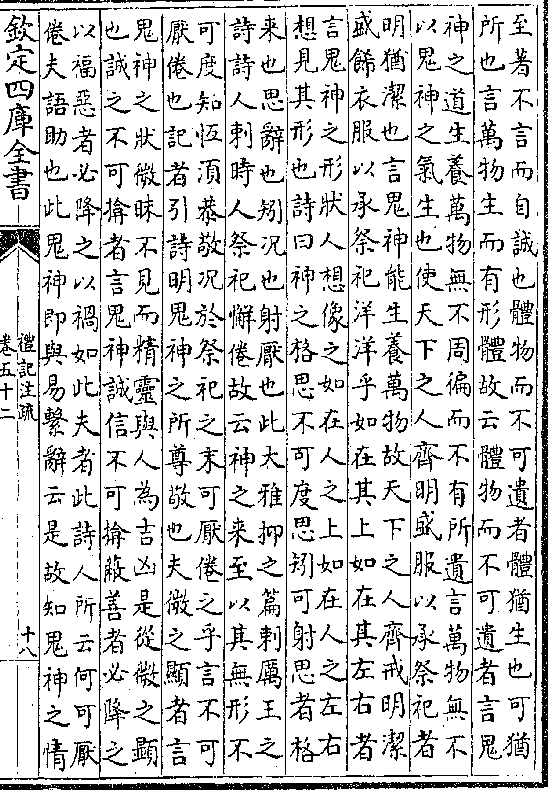 至著不言而自誠也體物而不可遺者體猶生也可猶
所也言萬物生而有形體故云體物而不可遺者言鬼
神之道生養萬物無不周徧而不有所遺言萬物無不
以鬼神之氣生也使天下之人齊明盛服以承祭祀者
明猶潔也言鬼神能生養萬物故天下之人齊戒明潔
盛餙衣服以承祭祀洋洋乎如在其上如在其左右者
言鬼神之形狀人想像之如在人之上如在人之左右
想見其形也詩曰神之格思不可度思矧可射思者格
来也思辭也矧况也射厭也此大雅抑之篇刺厲王之
詩詩人刺時人祭祀懈倦故云神之来至以其無形不
可度知恆須恭敬况於祭祀之末可厭倦之乎言不可
厭倦也記者引詩明鬼神之所尊敬也夫微之顯者言
鬼神之狀微昧不見而精靈與人為吉凶是從微之顯
也誠之不可揜者言鬼神誠信不可揜蔽善者必降之
以福惡者必降之以禍如此夫者此詩人所云何可厭
倦夫語助也此鬼神即與易繫辭云是故知鬼神之情
欽定四庫全書
禮記注疏
卷五十二
十八